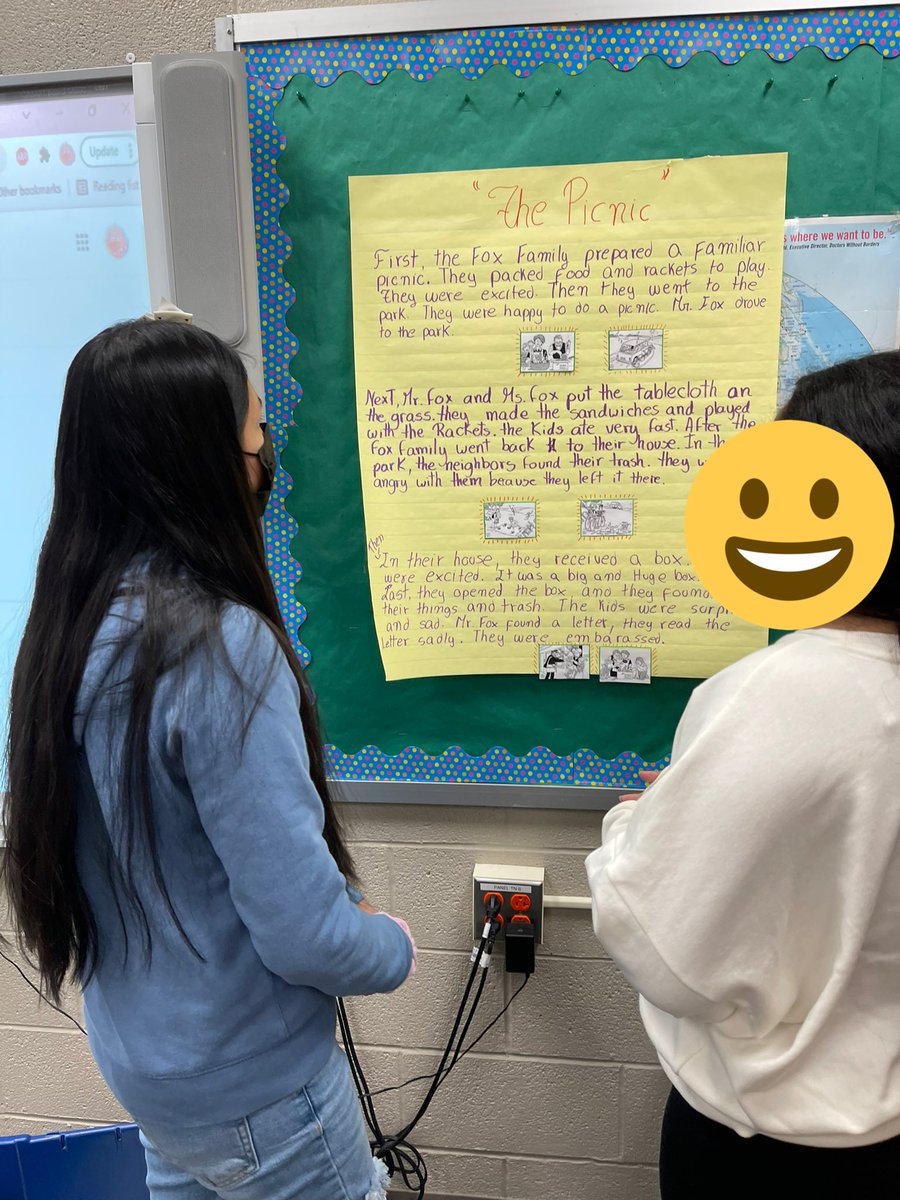 Update
Other bookmarks
Reading list
"The Picnic"
First, the Fox Family prepared a Familiar
picnic. They packed food and rackets to play.
They were excited. Then they went to the
park. They were happy to do a picnic. Mr. Fox drove
to the park.
Next, Mr. Fox and Ms. Fox put the tablecloth on
the grass. they made the sandwiches and played
with the Rackets. the Kids ate very fast. After the
Fox Family went back to their house. In
park, the neighbors found their trash. they
angry with them beause they left it there.
Then
In their house, they received a box.
were excited. It was a big and Huge box.
Last, they opened the box and they
their things and trash. The Kids were
and sad. Mr. Fox found a letter, they read the
letter sadly. They were embarassed.
where we want to be.
Executive Director, Doctors Without Borders
PANEL TN 6